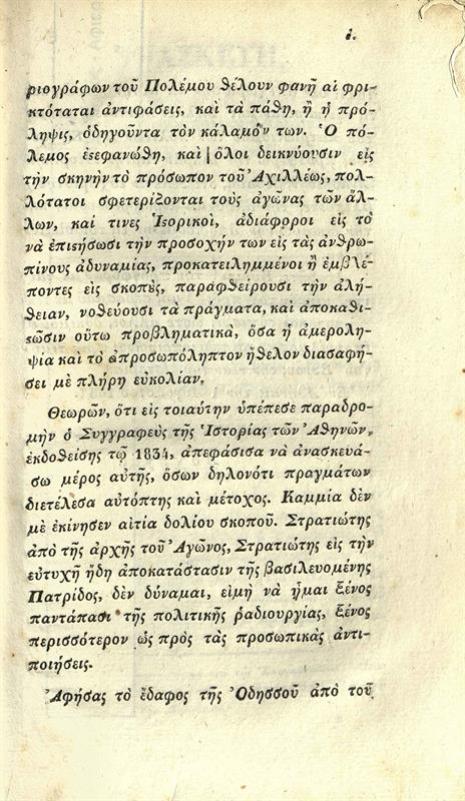 ί.
ριογράφων τοῦ Πολέμου θέλουν φανῆ αἱ φρι-
κτόταται ἀντιφάσεις, καὶ τὰ πάθη, ἢ ἡ πρό-
ληψις, ὁδηγοῦντα τὸν κάλαμόν των. Ὁ πό-
λεμος ἐϛεφανώθη, καὶ ὅλοι δεικνύουσιν εἰς
τὴν σκηνὴν τὸ πρόσωπον τοῦ Ἀχιλλέως, πολ-
λότατοι σφετερίζονται τοὺς ἀγῶνας τῶν ἄλ-
λων, καί τινες Ἱϛορικοὶ, ἀδιάφοροι εἰς τὸ
νὰ ἐπιϛήσωσι τὴν προσοχήν των εἰς τὰς ἀνθρω-
πίνους ἀδυναμίας, προκατειλημμένοι ἢ ἐμβλέ-
ποντες εἰς σκοπȣ̀ς, παραφθείρουσι τὴν ἀλή-
θειαν, νοθεύουσι τὰ πράγματα, καὶ ἀποκαθι-
ϛῶσιν οὕτω προβληματικὰ, ὅσα ἡ ἀμερολη-
ψία καὶ τὸ ἀπροσωπόληπτον ἤθελον διασαφή-
σει μὲ πλήρη εὐκολίαν.
Θεωρῶν, ὅτι εἰς τοιαύτην ὑπέπεσε παραδρο-
μὴν ὁ Συγγραφεὺς τῆς Ἱστορίας τῶν Ἀθηνῶν,
ἐκδοθείσης τῷ 1834, ἀπεφάσισα νὰ ἀνασκευά-
σω μέρος αὐτῆς, ὅσων δηλονότι πραγμάτων
διετέλεσα αὐτόπτης καὶ μέτοχος. Καμμία δὲν
μὲ ἐκίνησεν αἰτία δολίου σκοποῦ. Στρατιώτης
ἀπὸ τῆς ἀρχῆς τοῦ Ἀγῶνος, Στρατιώτης εἰς τὴν
εὐτυχῆ ἤδη ἀποκατάστασιν τῆς βασιλευομένης
Πατρίδος, δὲν δύναμαι, εἰμὴ νὰ ἦμαι ξένος
παντάπασι τῆς πολιτικῆς ῥαδιουργίας, ξένος
περισσότερον ὡς πρὸς τὰς προσωπικὰς ἀντι-
ποιήσεις.
Ἀφήσας τὸ ἔδαφος τῆς Ὀδησσοῦ ἀπὸ τοῦ